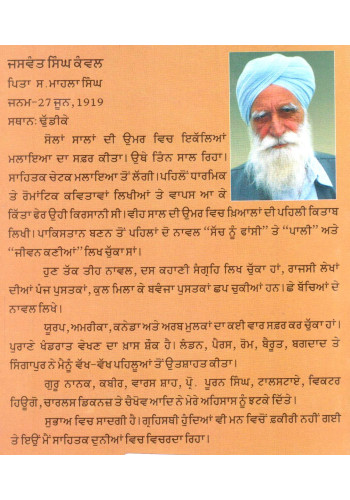 ਜਸਵੰਤ ਸਿੰਘ ਕੰਵਲ
ਪਿਤਾ ਸ. ਮਾਹਲਾ ਸਿੰਘ
ਜਨਮ-27 ਜੂਨ, 1919
ਸਥਾਨ: ਢੁੱਡੀਕੇ
ਸੋਲਾਂ ਸਾਲਾਂ ਦੀ ਉਮਰ ਵਿਚ ਇਕੱਲਿਆਂ
ਮਲਾਇਆ ਦਾ ਸਫ਼ਰ ਕੀਤਾ। ਉਥੇ ਤਿੰਨ ਸਾਲ ਰਿਹਾ।
ਸਾਹਿਤਕ ਚੇਟਕ ਮਲਾਇਆ ਤੋਂ ਲੱਗੀ। ਪਹਿਲੋਂ ਧਾਰਮਿਕ
ਤੇ ਰੋਮਾਂਟਿਕ ਕਵਿਤਾਵਾਂ ਲਿਖੀਆਂ ਤੇ ਵਾਪਸ ਆ ਕੇ
ਕਿੱਤਾ ਫੇਰ ਉਹੀ ਕਿਰਸਾਨੀ ਸੀ। ਵੀਹ ਸਾਲ ਦੀ ਉਮਰ ਵਿਚ ਖ਼ਿਆਲਾਂ ਦੀ ਪਹਿਲੀ ਕਿਤਾਬ
ਲਿਖੀ। ਪਾਕਿਸਤਾਨ ਬਣਨ ਤੋਂ ਪਹਿਲਾਂ ਦੋ ਨਾਵਲ “ਸੱਚ ਨੂੰ ਫਾਂਸੀ” ਤੇ “ਪਾਲੀ” ਅਤੇ
“ਜੀਵਨ ਕਣੀਆਂ” ਲਿਖ ਚੁੱਕਾ ਸਾਂ।
ਹੁਣ ਤੱਕ ਤੀਹ ਨਾਵਲ, ਦਸ ਕਹਾਣੀ ਸੰਗ੍ਰਹਿ ਲਿਖ ਚੁੱਕਾ ਹਾਂ, ਰਾਜਸੀ ਲੇਖਾਂ
ਦੀਆਂ ਪੰਜ ਪੁਸਤਕਾਂ, ਕੁਲ ਮਿਲਾ ਕੇ ਬਵੰਜਾ ਪੁਸਤਕਾਂ ਛਪ ਚੁਕੀਆਂ ਹਨ। ਛੇ ਬੱਚਿਆਂ ਦੇ
ਨਾਵਲ ਲਿਖੇ।
ਯੂਰਪ, ਅਮਰੀਕਾ, ਕਨੇਡਾ ਅਤੇ ਅਰਬ ਮੁਲਕਾਂ ਦਾ ਕਈ ਵਾਰ ਸਫ਼ਰ ਕਰ ਚੁੱਕਾ ਹਾਂ।
ਪੁਰਾਣੇ ਖੰਡਰਾਤ ਵੇਖਣ ਦਾ ਖ਼ਾਸ ਸ਼ੌਕ ਹੈ। ਲੰਡਨ, ਪੈਰਸ, ਰੋਮ, ਬੈਰੂਤ, ਬਗਦਾਦ ਤੇ
ਸਿੰਗਾਪੁਰ ਨੇ ਮੈਨੂੰ ਵੱਖ-ਵੱਖ ਪਹਿਲੂਆਂ ਤੋਂ ਉਤਸ਼ਾਹਤ ਕੀਤਾ।
ਗੁਰੂ ਨਾਨਕ, ਕਬੀਰ, ਵਾਰਸ ਸ਼ਾਹ, ਪ੍ਰੋ. ਪੂਰਨ ਸਿੰਘ, ਟਾਲਸਟਾਏ, ਵਿਕਟਰ
ਹਿਊਗੋ, ਚਾਰਲਸ ਡਿਕਨਜ਼ ਤੇ ਚੈਖੋਵ ਆਦਿ ਨੇ ਮੇਰੇ ਅਹਿਸਾਸ ਨੂੰ ਝਟਕੇ ਦਿੱਤੇ।
ਸੁਭਾਅ ਵਿਚ ਸਾਦਗੀ ਹੈ। ਗ੍ਰਹਿਸਥੀ ਹੁੰਦਿਆਂ ਵੀ ਮਨ ਵਿਚੋਂ ਫ਼ਕੀਰੀ ਨਹੀਂ ਗਈ
ਤੇ ਇਉਂ ਮੈਂ ਸਾਹਿਤਕ ਦੁਨੀਆਂ ਵਿਚ ਵਿਚਰਦਾ ਰਿਹਾ।